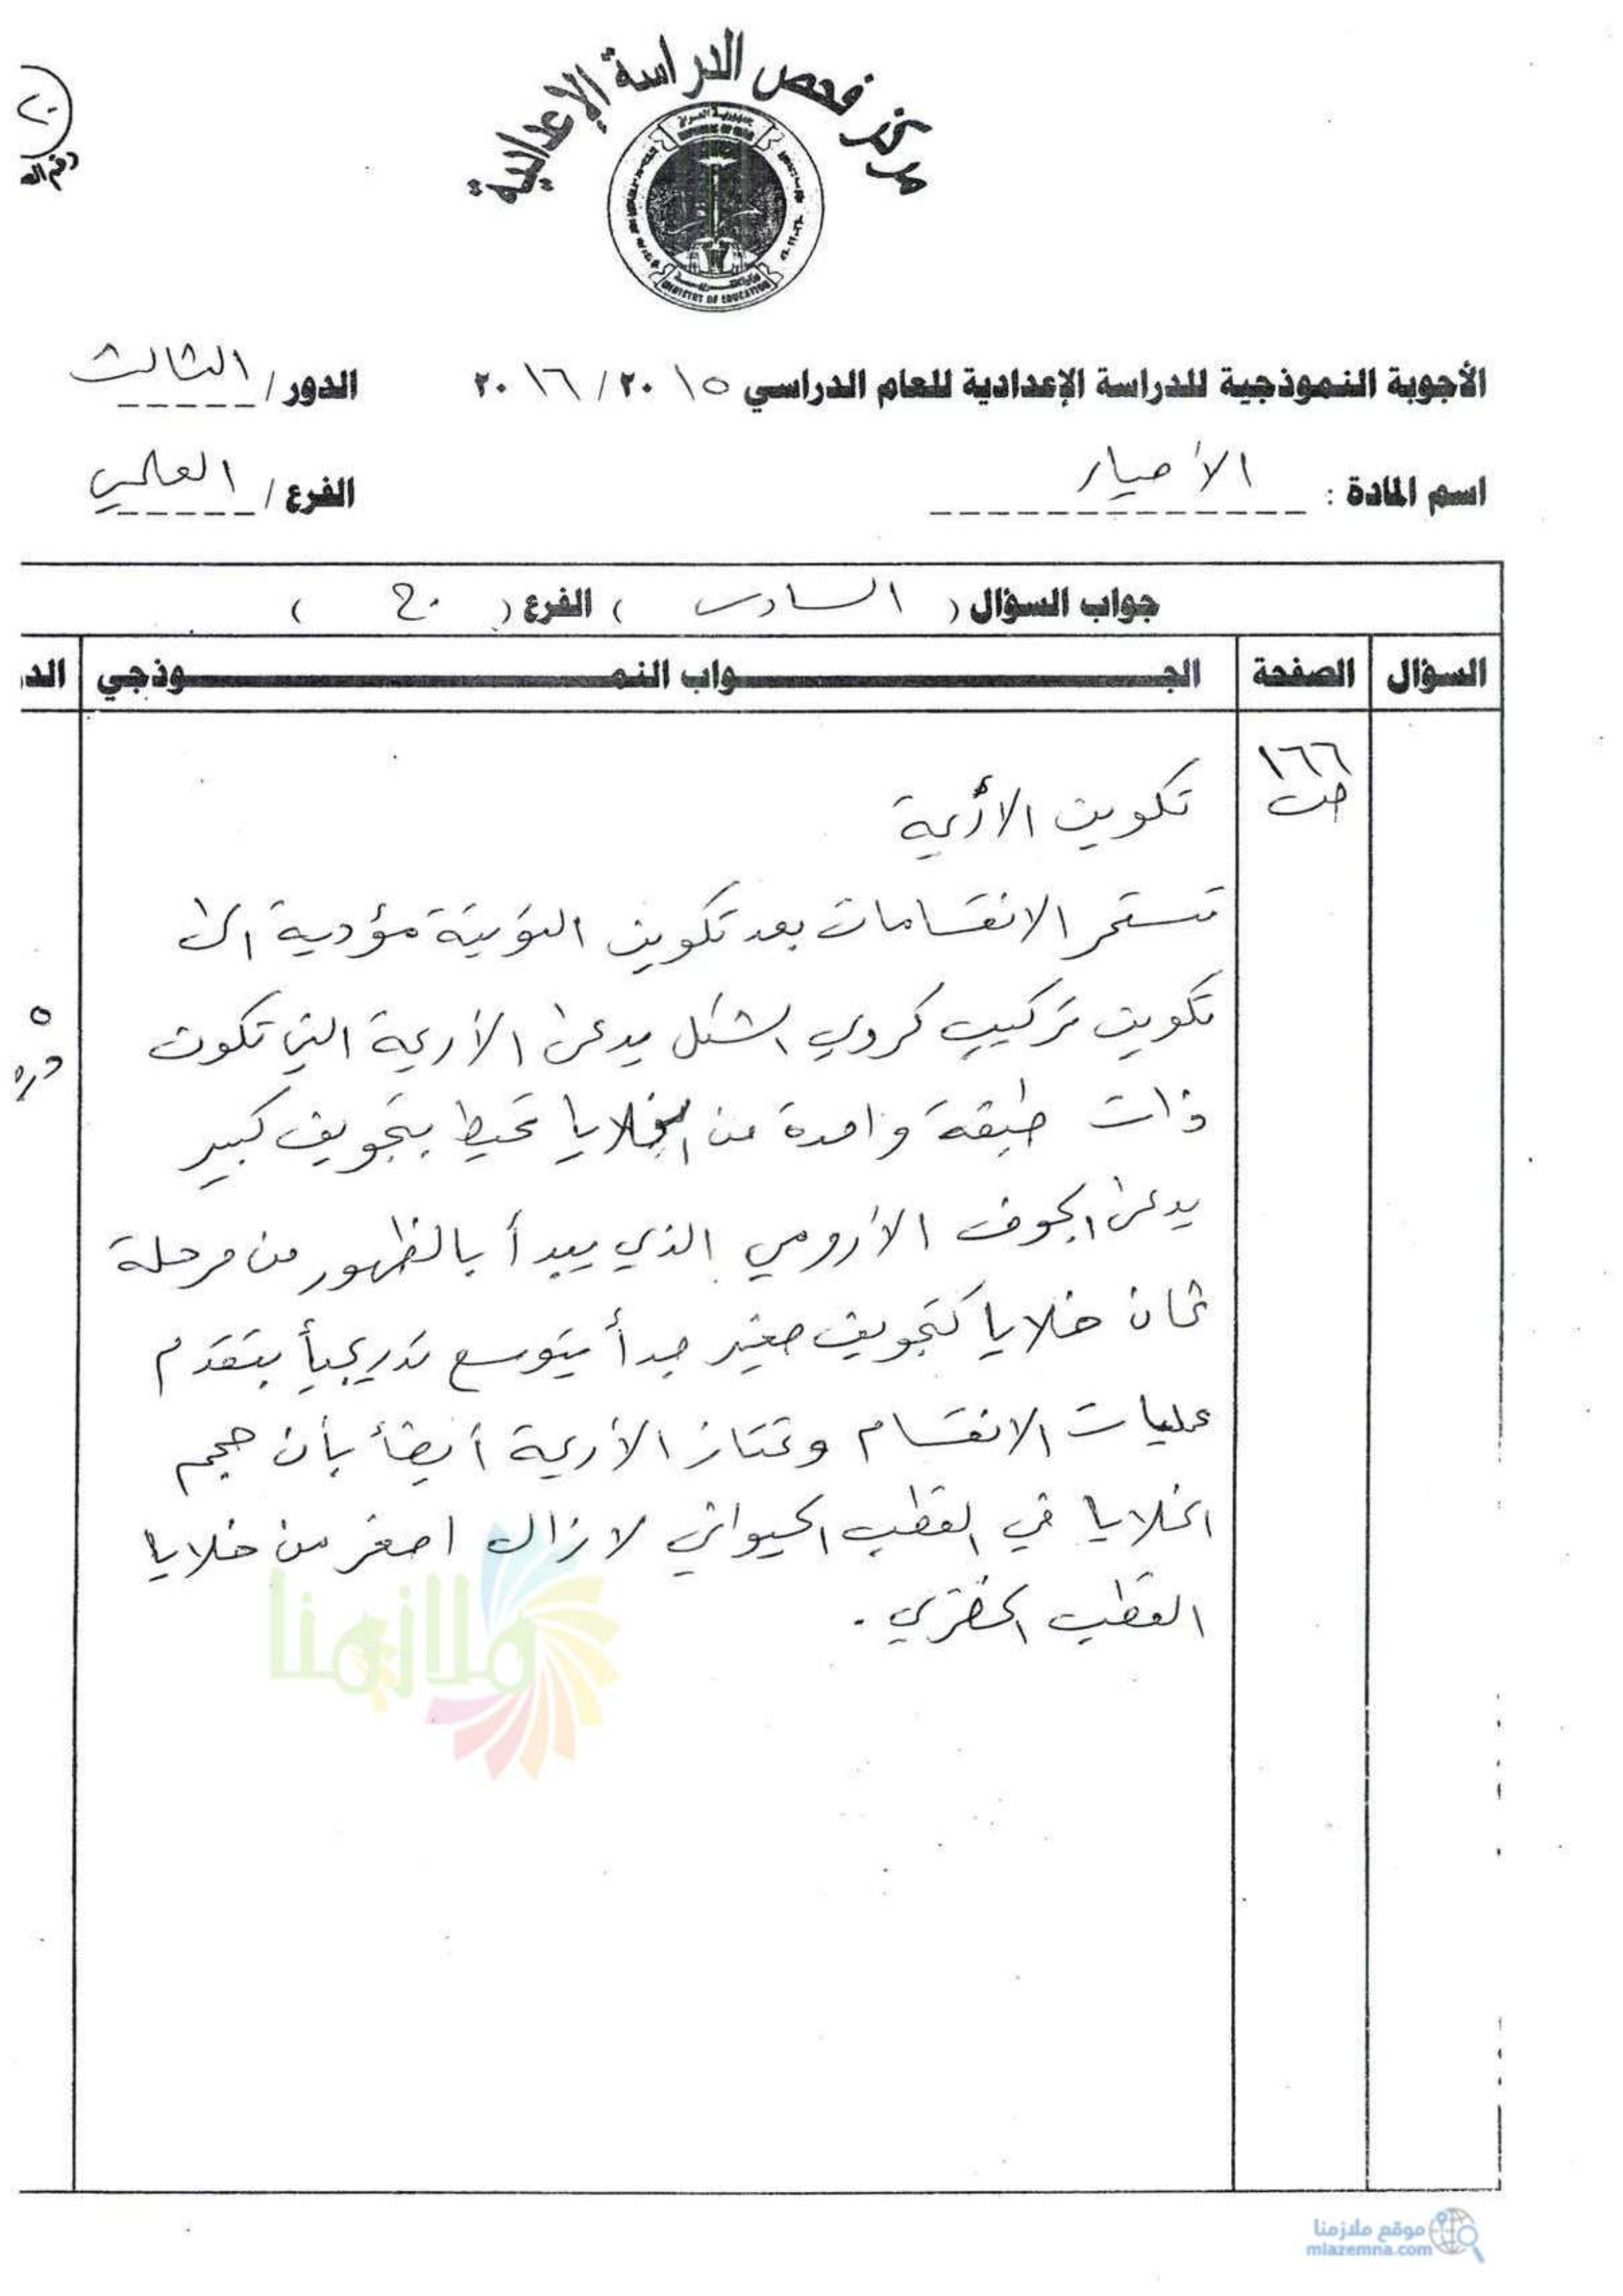 مركز فحص الدراسة الإعدادية
جمهورية العراق
REPUBLIC OF IRAQ
MINISTRY OF EDUCATION
٢٠
رقم الـ
الأجوبة النموذجية للدراسة الإعدادية للعام الدراسي ٢٠١٥ / ٢٠١٦ الدور / الثالث
اسم المادة : الأحياء الفرع / العلمي
جواب السؤال ( السادس ) الفرع ( ج )
السؤال الصفحة الجـــواب النمـــوذجي الد
١٦٦
تكوين الأريمة
تستمر الانقسامات بعد تكوين التويتة مؤدية الى
تكوين تركيب كروي الشكل يدعى الأريمة التي تكون
ذات طبقة واحدة من الخلايا تحيط بتجويف كبير
يدعى الجوف الأرومي الذي يبدأ بالظهور من مرحلة
ثمان خلايا كتجويف صغير جداً يتوسع تدريجياً بتقدم
عمليات الانقسام وتمتاز الأريمة أيضاً بأن حجم
الخلايا في القطب الحيواني لازال اصغر من خلايا
القطب الخضري .
٥
ملازمنا
موقع ملازمنا
mlazemna.com